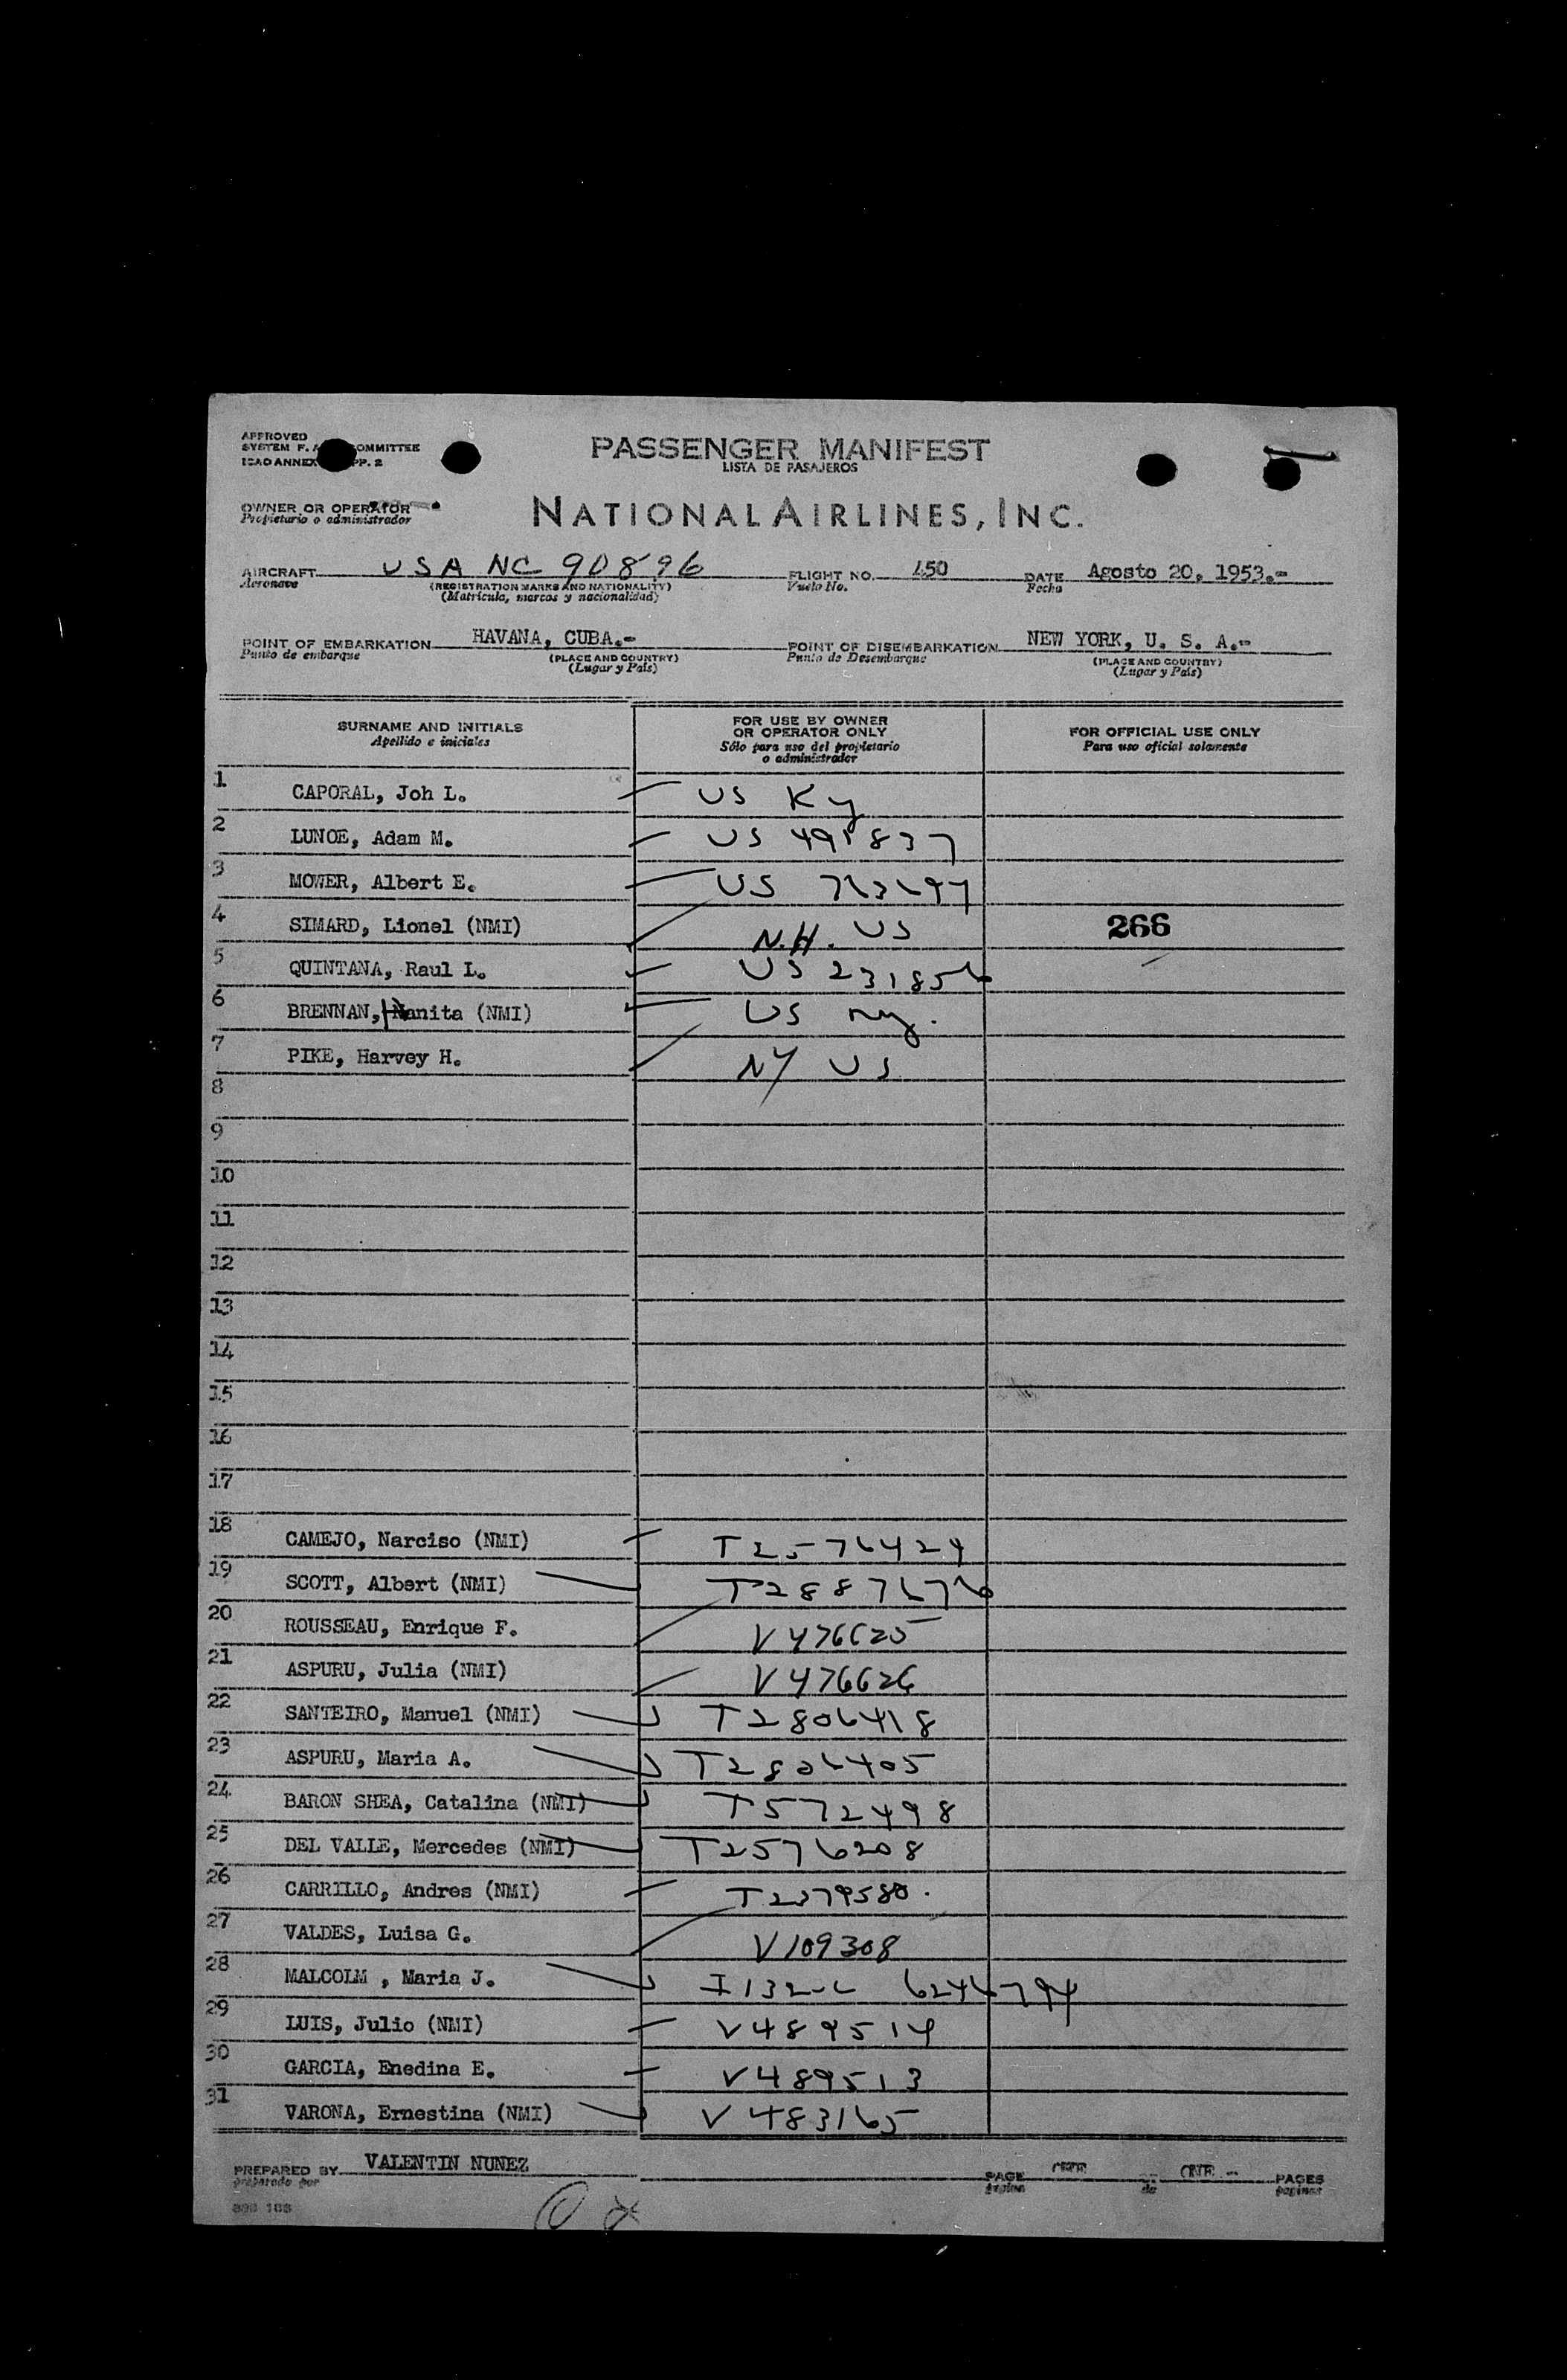 APPROVED
SYSTEM F. A. COMMITTEE
ICAO ANNEX PP. 2
PASSENGER MANIFEST
LISTA DE PASAJEROS
OWNER OR OPERATOR
Propietario o administrador
NATIONAL AIRLINES, INC.
AIRCRAFT USA NC 90896 FLIGHT NO. 450 DATE Agosto 20, 1953.-
Aeronave (REGISTRATION MARKS AND NATIONALITY) Vuelo No. Fecha
(Matricula, marcas y nacionalidad)
POINT OF EMBARKATION HAVANA, CUBA.- POINT OF DISEMBARKATION NEW YORK, U. S. A.-
Punto de embarque (PLACE AND COUNTRY) Punto de Desembarque (PLACE AND COUNTRY)
(Lugar y País) (Lugar y País)
SURNAME AND INITIALS
Apellido e iniciales
FOR USE BY OWNER
OR OPERATOR ONLY
Sólo para uso del propietario
o administrador
FOR OFFICIAL USE ONLY
Para uso oficial solamente
1 CAPORAL, Joh L. US Ky
2 LUNOE, Adam M. US 491837
3 MOWER, Albert E. US
4 SIMARD, Lionel (NMI) N.H. US 266
5 QUINTANA, Raul L. US 231856
6 BRENNAN, Nanita (NMI) US NY.
7 PIKE, Harvey H. NY US
8
9
10
11
12
13
14
15
16
17
18 CAMEJO, Narciso (NMI) T2576424
19 SCOTT, Albert (NMI) T2887676
20 ROUSSEAU, Enrique F. V476625
21 ASPURU, Julia (NMI) V476626
22 SANTEIRO, Manuel (NMI) T2806418
23 ASPURU, Maria A. T2806405
24 BARON SHEA, Catalina (NMI) T572498
25 DEL VALLE, Mercedes (NMI) T2576208
26 CARRILLO, Andres (NMI) T2379580.
27 VALDES, Luisa G. V109308
28 MALCOLM , Maria J. 6246794
29 LUIS, Julio (NMI) V489514
30 GARCIA, Enedina E. V489513
31 VARONA, Ernestina (NMI) V483165
PREPARED BY VALENTIN NUNEZ PAGE ONE ONE - PAGES
preparado por página de paginas